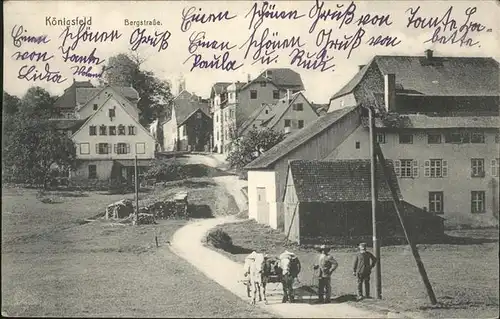 Königsfeld
Bergstraße.
Einen
schönen Gruß
von Tante
Lida
Einen schönen Gruß von Tante Ba-
bette,
Einen schönen Gruß von
Paula u. Rut